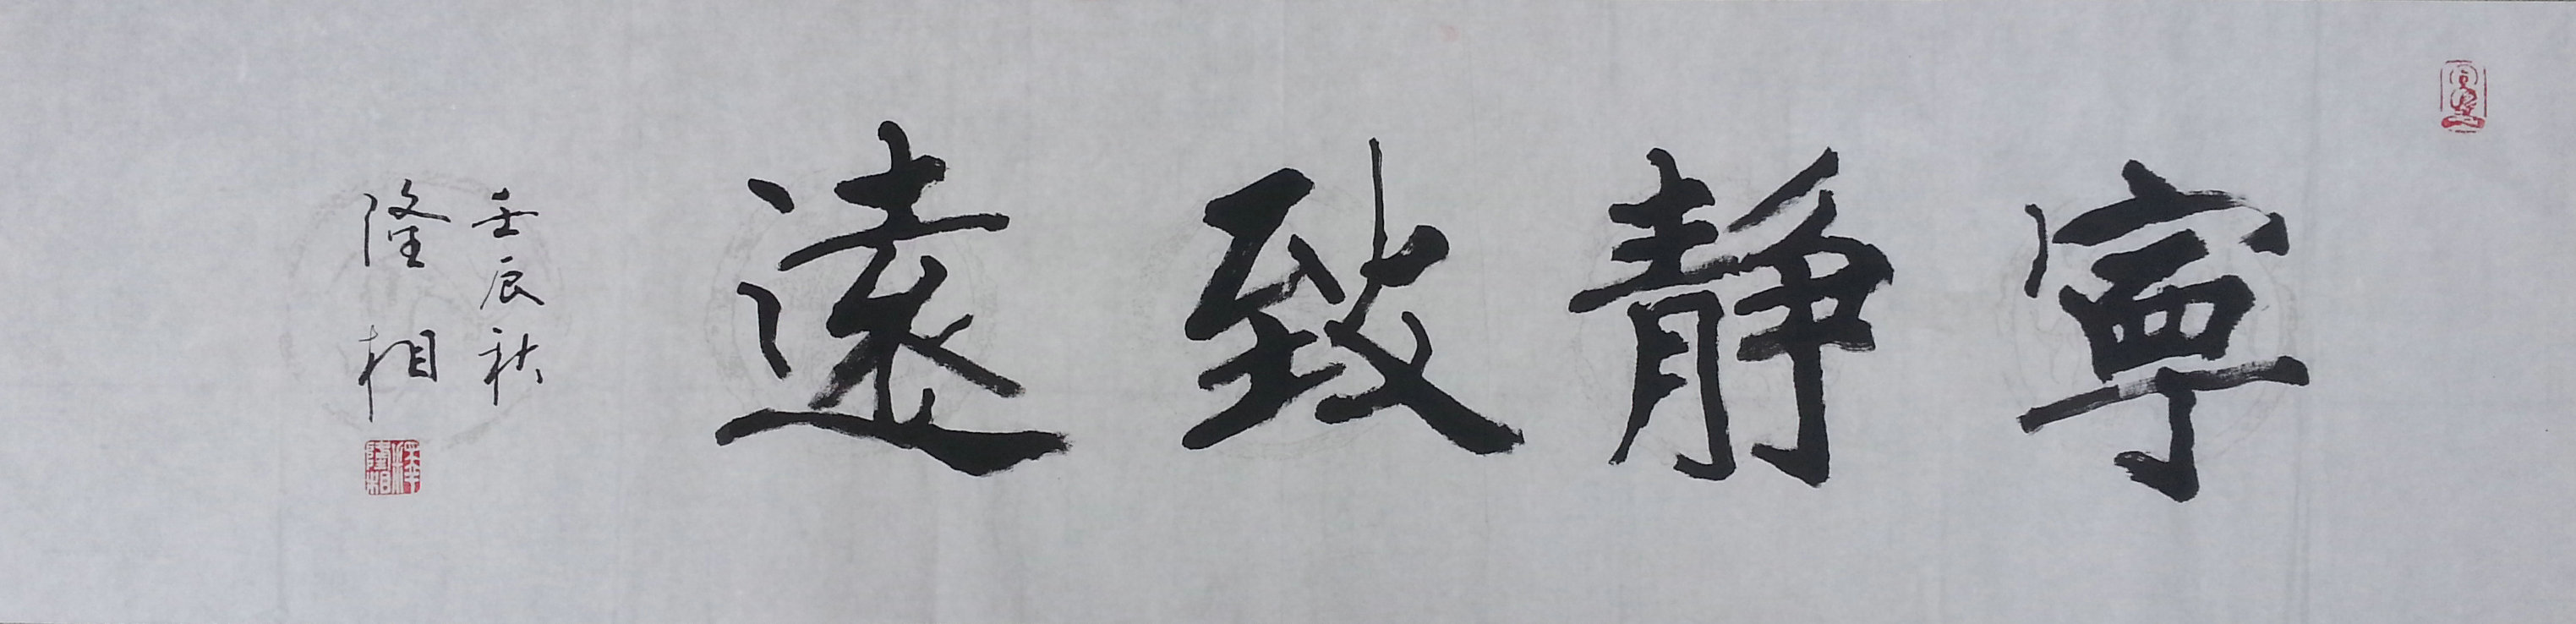 寧静致遠
壬辰秋
隆相